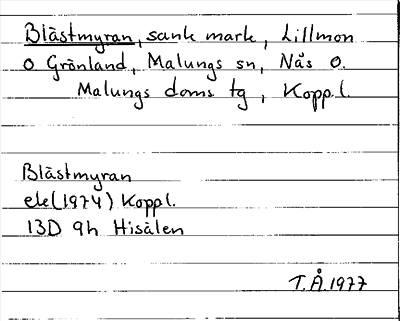 Blästmyran, sank mark, Lillmon
o Grönland, Malungs sn, Nås o.
Malungs doms tg, Koppl.
Blästmyran
ek(1974) Koppl.
13D 9h Hisälen
T.Å.1977